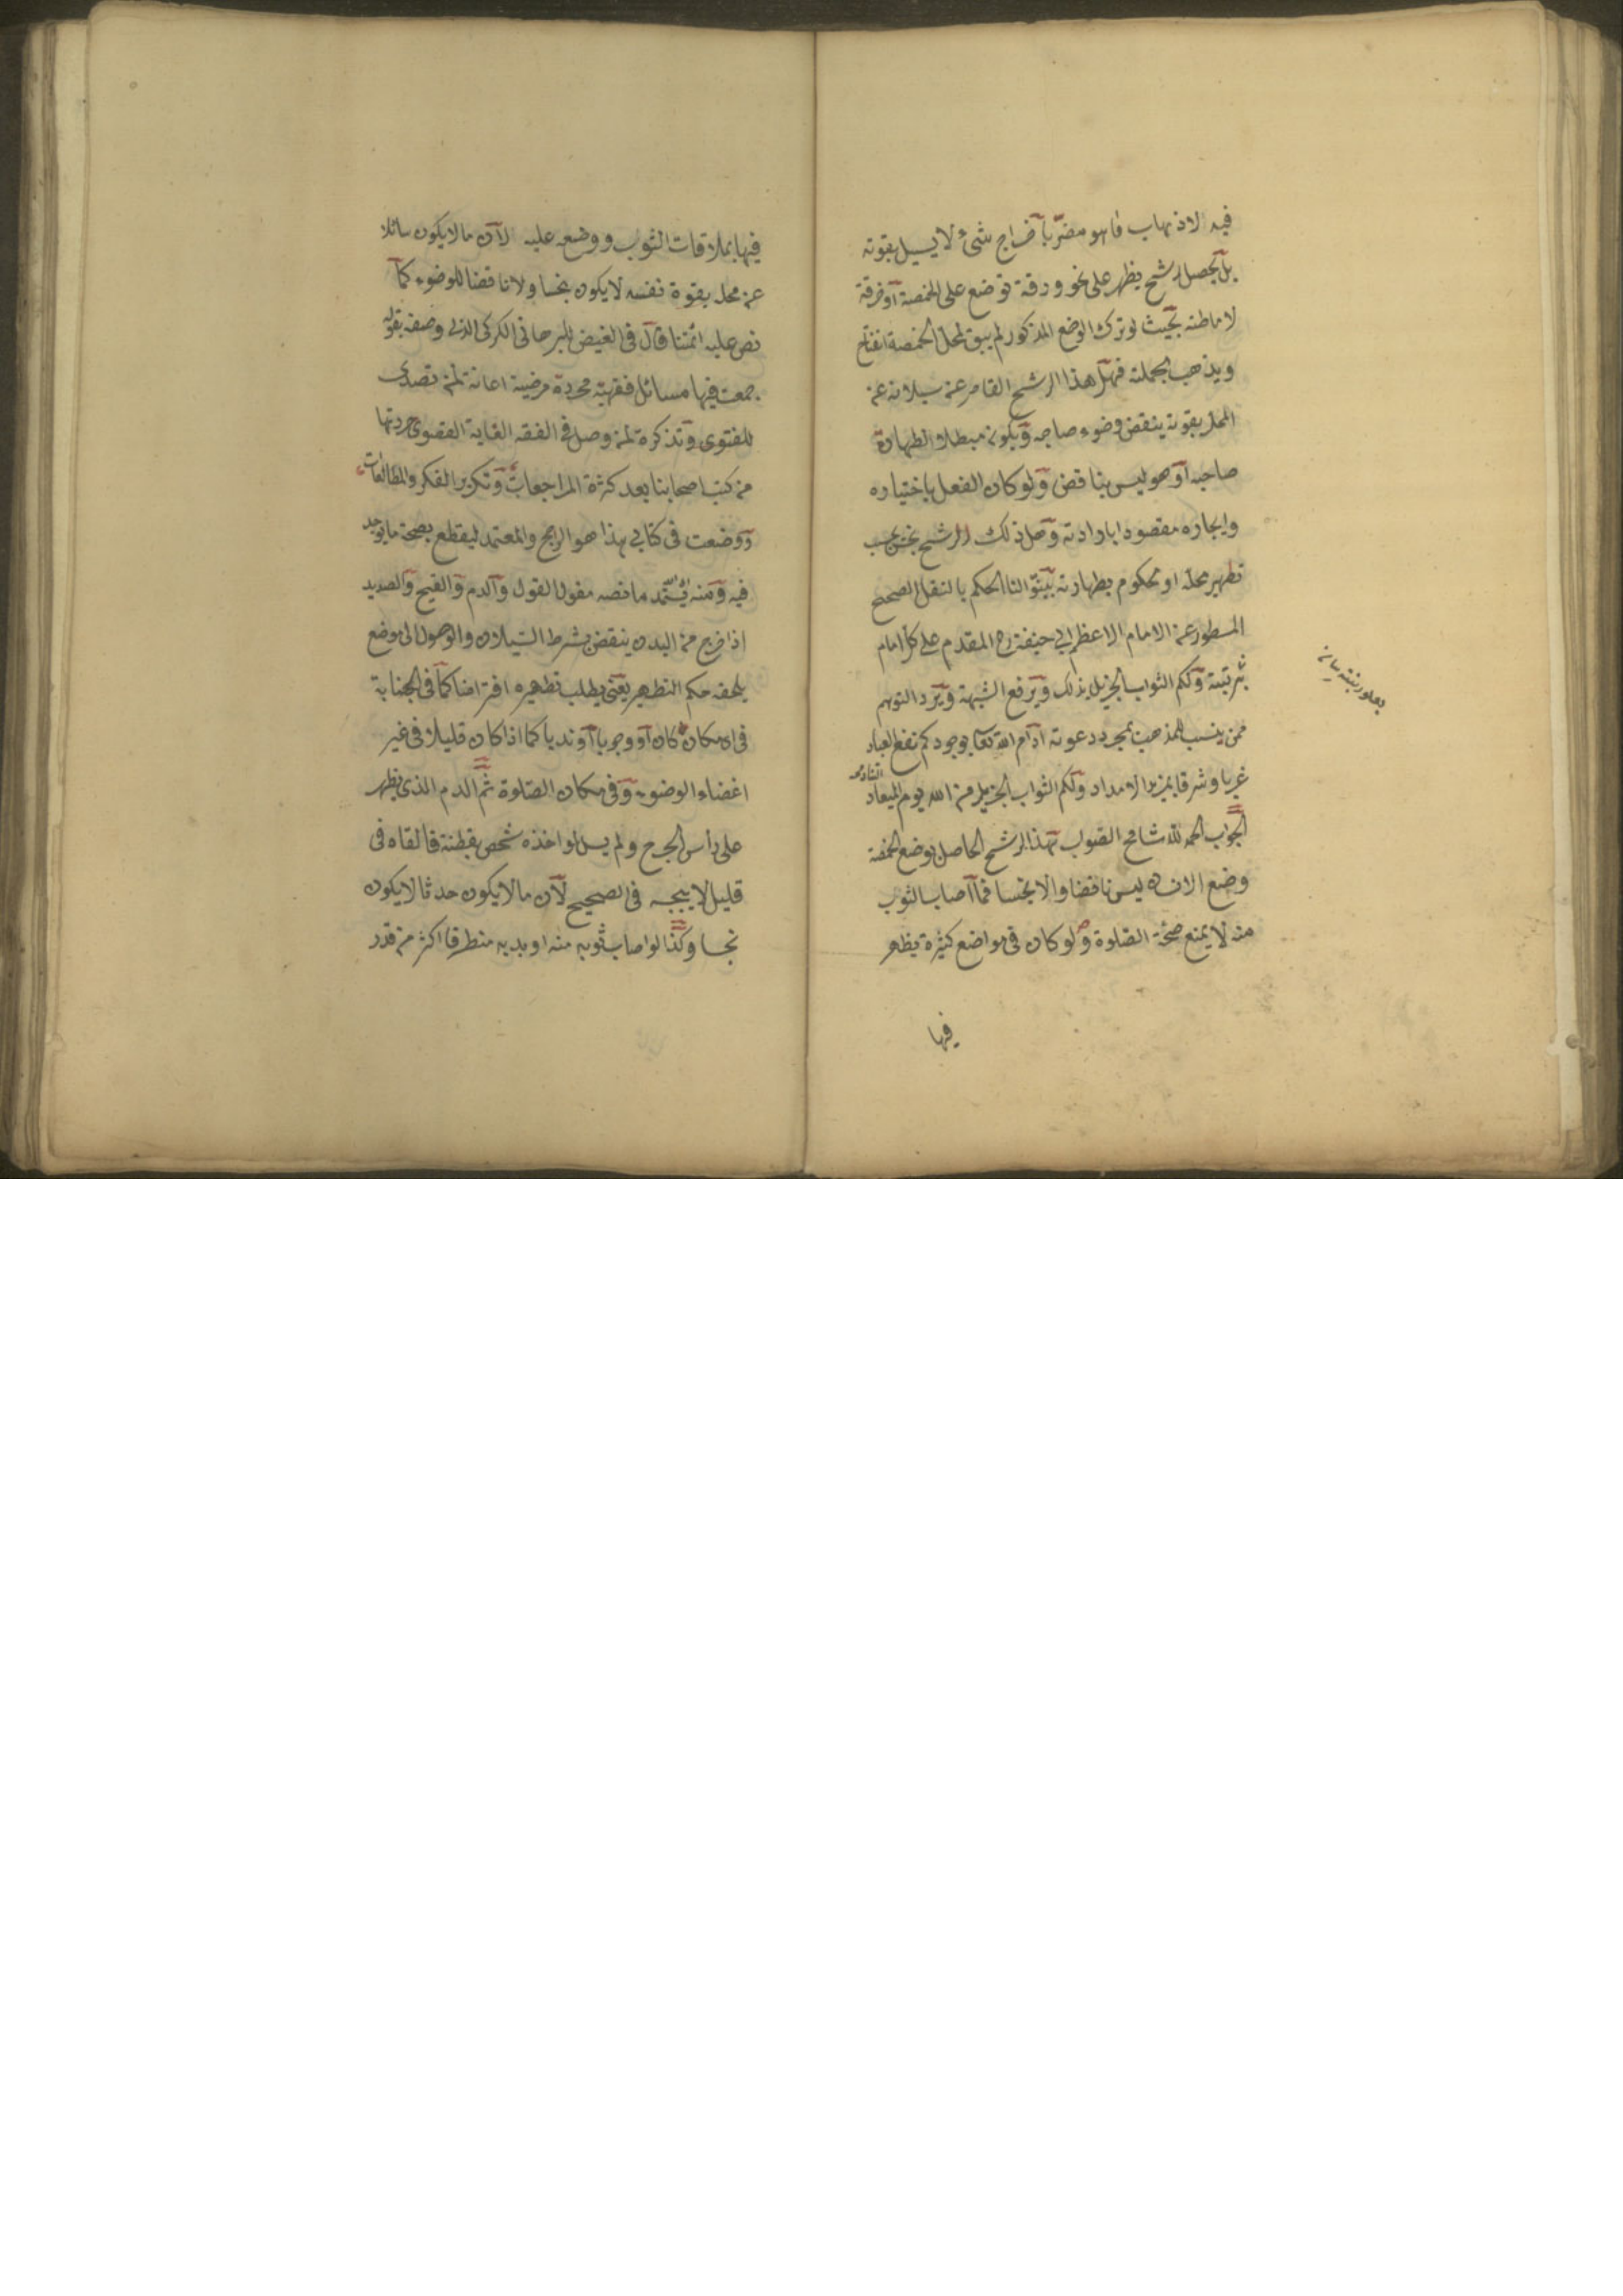 فيه لاذهاب ما هو مضر بآخراج شئ لا يسيل بقوته
بل يحصل رشح يظهر على نحو ورقة توضع على الحمصة آو خرقة
لاماطته بحيث لو ترك الوضع المذكور لم يبق لمحل الحمصة انفتاح
ويذهب بجملته فهل هذا الرشح القاصر عن سيلانه عن
المحل بقوته ينقض وضوء صاحبه ويكون مبطلا لطهارة
صاحبه آو هو ليس بناقض ولو كان الفعل باختياره
وايجاره مقصودا بارادته وهل ذلك الرشح نجس يجب
تطهير محله او محكوم بطهارته بينوا لنا الحكم بالنقل الصحيح
المسطور عن الامام الاعظم ابي حنيفة رح المقدم على كل امام
بمرتبته ولكم الثواب الجزيل بذلك ويرفع الشبهة ويرد التوهم
ممن ينسب للمذهب بمجرد دعوته ادام الله تعا بوجودكم نفع العباد
غربا وشرقا بمزيد الامداد ولكم الثواب الجزيل من الله يوم الميعاد
الجواب الحمد لله مانح الصواب هذا الرشح الحاصل بوضع الحمصة
وضع الانسان ليس ناقضا ولا نجسا فما آصاب الثوب
منه لا يمنع صحة الصلوة ولو كان في مواضع كثيرة يظهر
فيها
فيها بملاقات الثوب ووضعه عليه لآن ما لا يكون سائلا
عن محله بقوة نفسه لا يكون نجسا ولا ناقضا للوضوء كما
نص عليه ائمتنا قال في الفيض للبرهاني الكركي الذي وصفه بقوله
جمعت فيها مسائل فقهية محررة مرضية اعانة لمن تصدى
للفتوى وتذكرة لمن وصل في الفقه الغاية القصوى حررتها
من كتب اصحابنا بعد كثرة المراجعات وتكرير الفكر والمطالعات
ووضعت في كتابي هذا هو الراجح والمعتمد ليقطع بصحة ما يوجد
فيه ومنه يستمد ما نصه مقول القول والدم والقيح والصديد
اذا خرج من البدن ينقض بشرط السيلان والوصول الى موضع
يلحقه حكم التطهير يعني يطلب تطهيره افتراضا كما في الجنابة
في اى مكان كان آو وجوبا آو ندبا كما اذا كان قليلا في غير
اعضاء الوضوء وفي مكان الصلوة ثم الدم الذى يظهر
على رأس الجرح ولم يسل لو اخذه شخص بقطنة فالقاه في
قليل لا ينجسه في الصحيح لآن ما لا يكون حدثا لا يكون
نجسا وكذا لو اصاب ثوبه منه او بدنه متطرقا اكثر من قدر